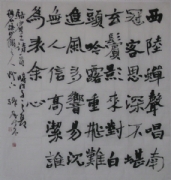 西陸蟬聲唱南
冠客思深不堪
玄鬢影來對白
頭吟露重飛難
進風多響易沉
無人信高潔誰
為表余心